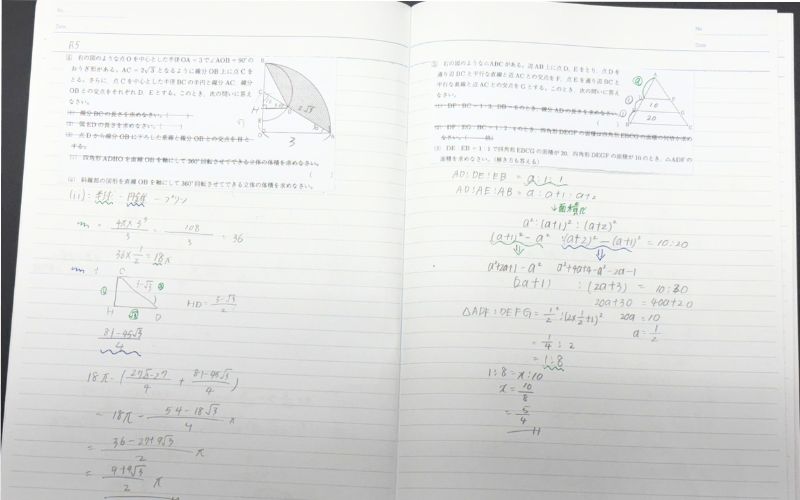 No.
Date
R5
右の図のような点Oを中心とした半径OA=3で∠AOB=90°の
おうぎ形がある。AC=2√3となるように線分OB上に点Cを
とる。さらに、点Cを中心とした半径BCの半円と線分AC、線分
OBとの交点をそれぞれD、Eとする。このとき、次の問いに答え
なさい。
(1) 線分BCの長さを求めなさい。( )
(2) 弧EDの長さを求めなさい。( )
(3) 点Dから線分OBに下ろした垂線と線分OBとの交点をHと
する。
(i) 四角形ADHOを直線OBを軸にして360°回転させてできる立体の体積を求めなさい。
( )
(ii) 斜線部の図形を直線OBを軸にして360°回転させてできる立体の体積を求めなさい。
B
C
H
O
A
2√3
3
(ii) = 半球 - 円錐 - プリン
= 4π×3³ / 3
108 / 3
= 36
36×1/2 = 18π
C
H
D
HD=
81-45√3 / 4
18π - ( 27√3-27 / 4 + 81-45√3 / 4 )
= 18π - 54-18√3 / 4 π
= 36-27+9√3 / 2 π
= 9+9√3 / 2 π
No.
Date
右の図のような△ABCがある。辺AB上に点D、Eをとり、点Dを
通り辺BCと平行な直線と辺ACとの交点をF、点Eを通り辺BCと
平行な直線と辺ACとの交点をGとする。このとき、次の問いに答え
なさい。
(3) DE:EB=1:1で四角形EBCGの面積が20、四角形DEGFの面積が10のとき、△ADFの
面積を求めなさい。(解き方も答える)
A
10
20
AD:DE:EB = a:1:1
AD:AE:AB = a:a+1:a+2
↓面積化
a²:(a+1)²:(a+2)²
(a+1)²-a² :(a+2)²-(a+1)² = 10:20
a²+2a+1-a² a²+4a+4-a²-2a-1
(2a+1) :(2a+3) = 10:20
20a+30 = 40a+20
20a=10
a= 1/2
△ADF:DEFG= 1/2² :(2×1/2+1)
= 1/4 : 2
= 1:8
1:8=x:10
x= 10/8
= 5/4